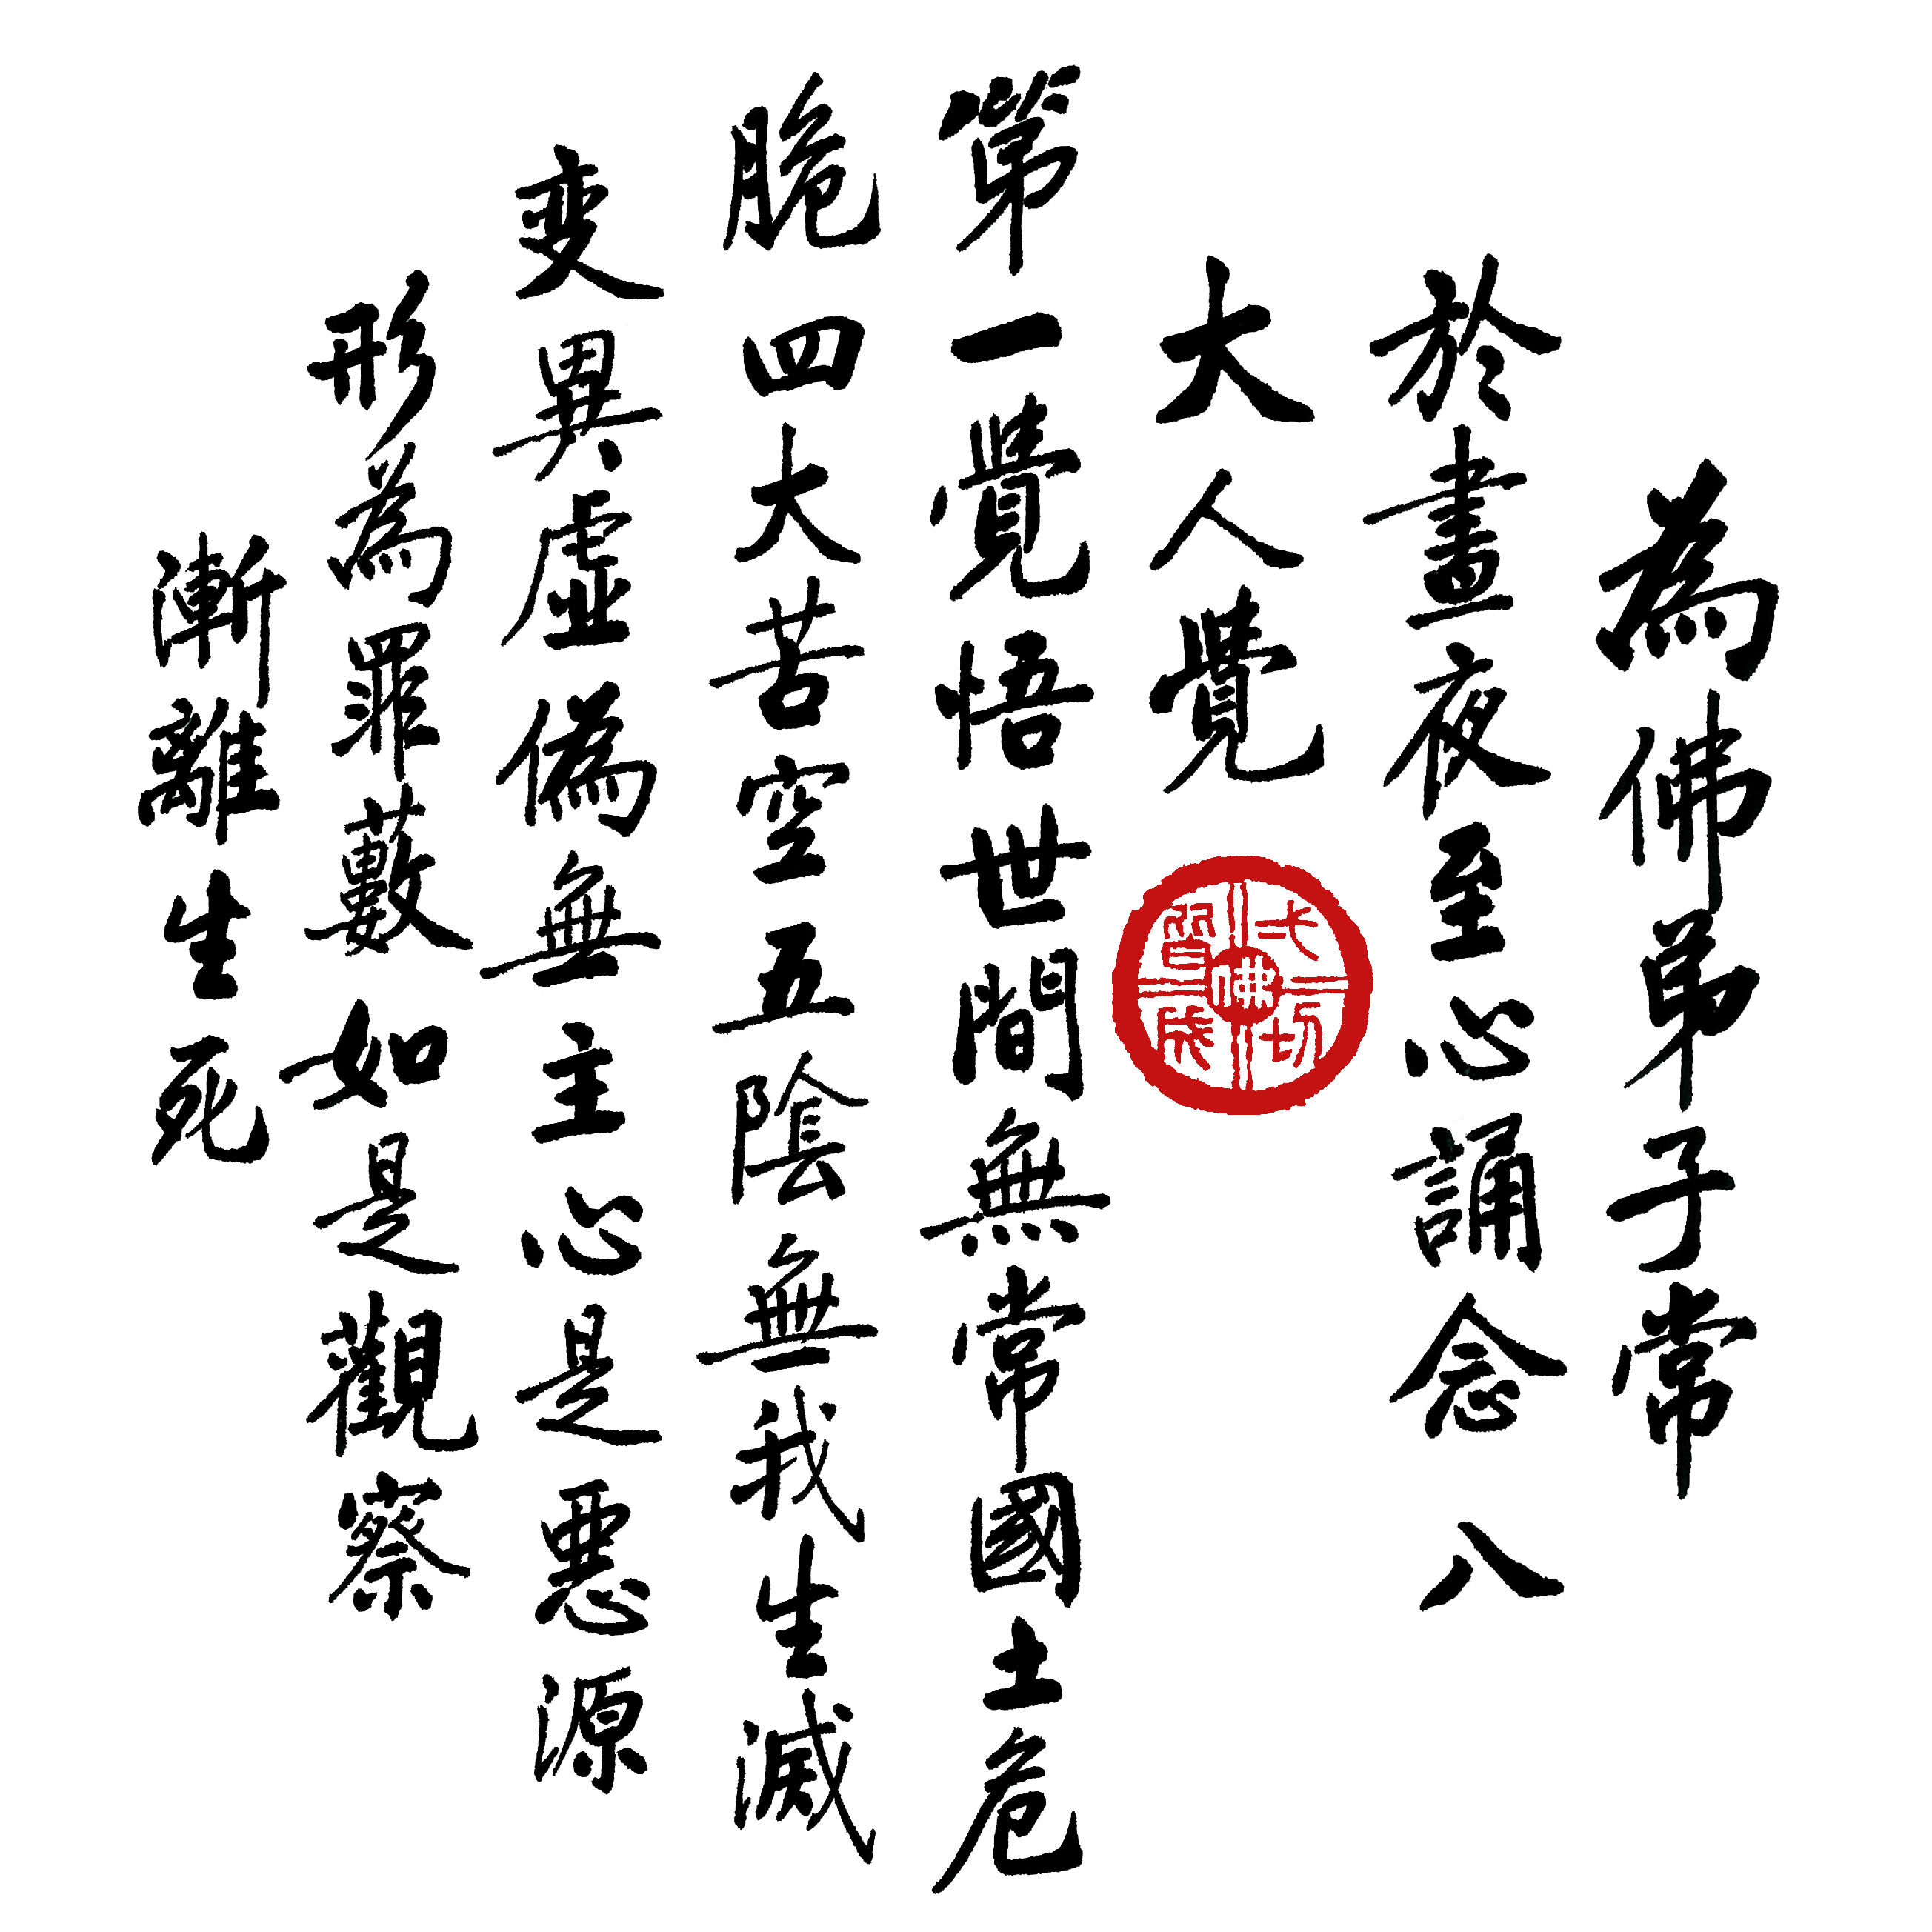 為佛弟子常
於晝夜至心誦念八
大人覺
第一覺悟世間無常國土危
脆四大苦空五陰無我生滅
變異虛偽無主心是悪源
形為罪藪如是觀察
漸離生死